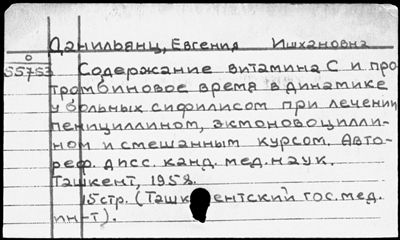 Данильянц, Евгения Ишхановна
О
55753 Содержание витамина С и про-
тромбиновое время в динамике
у больных сифилисом при лечении
пенициллином, экмоновоцилли-
ном и смешанным курсом. Авто-
реф. дисс. канд. мед. наук.
Ташкент, 1958.
15 стр. (Ташкентский гос. мед.
ин-т).